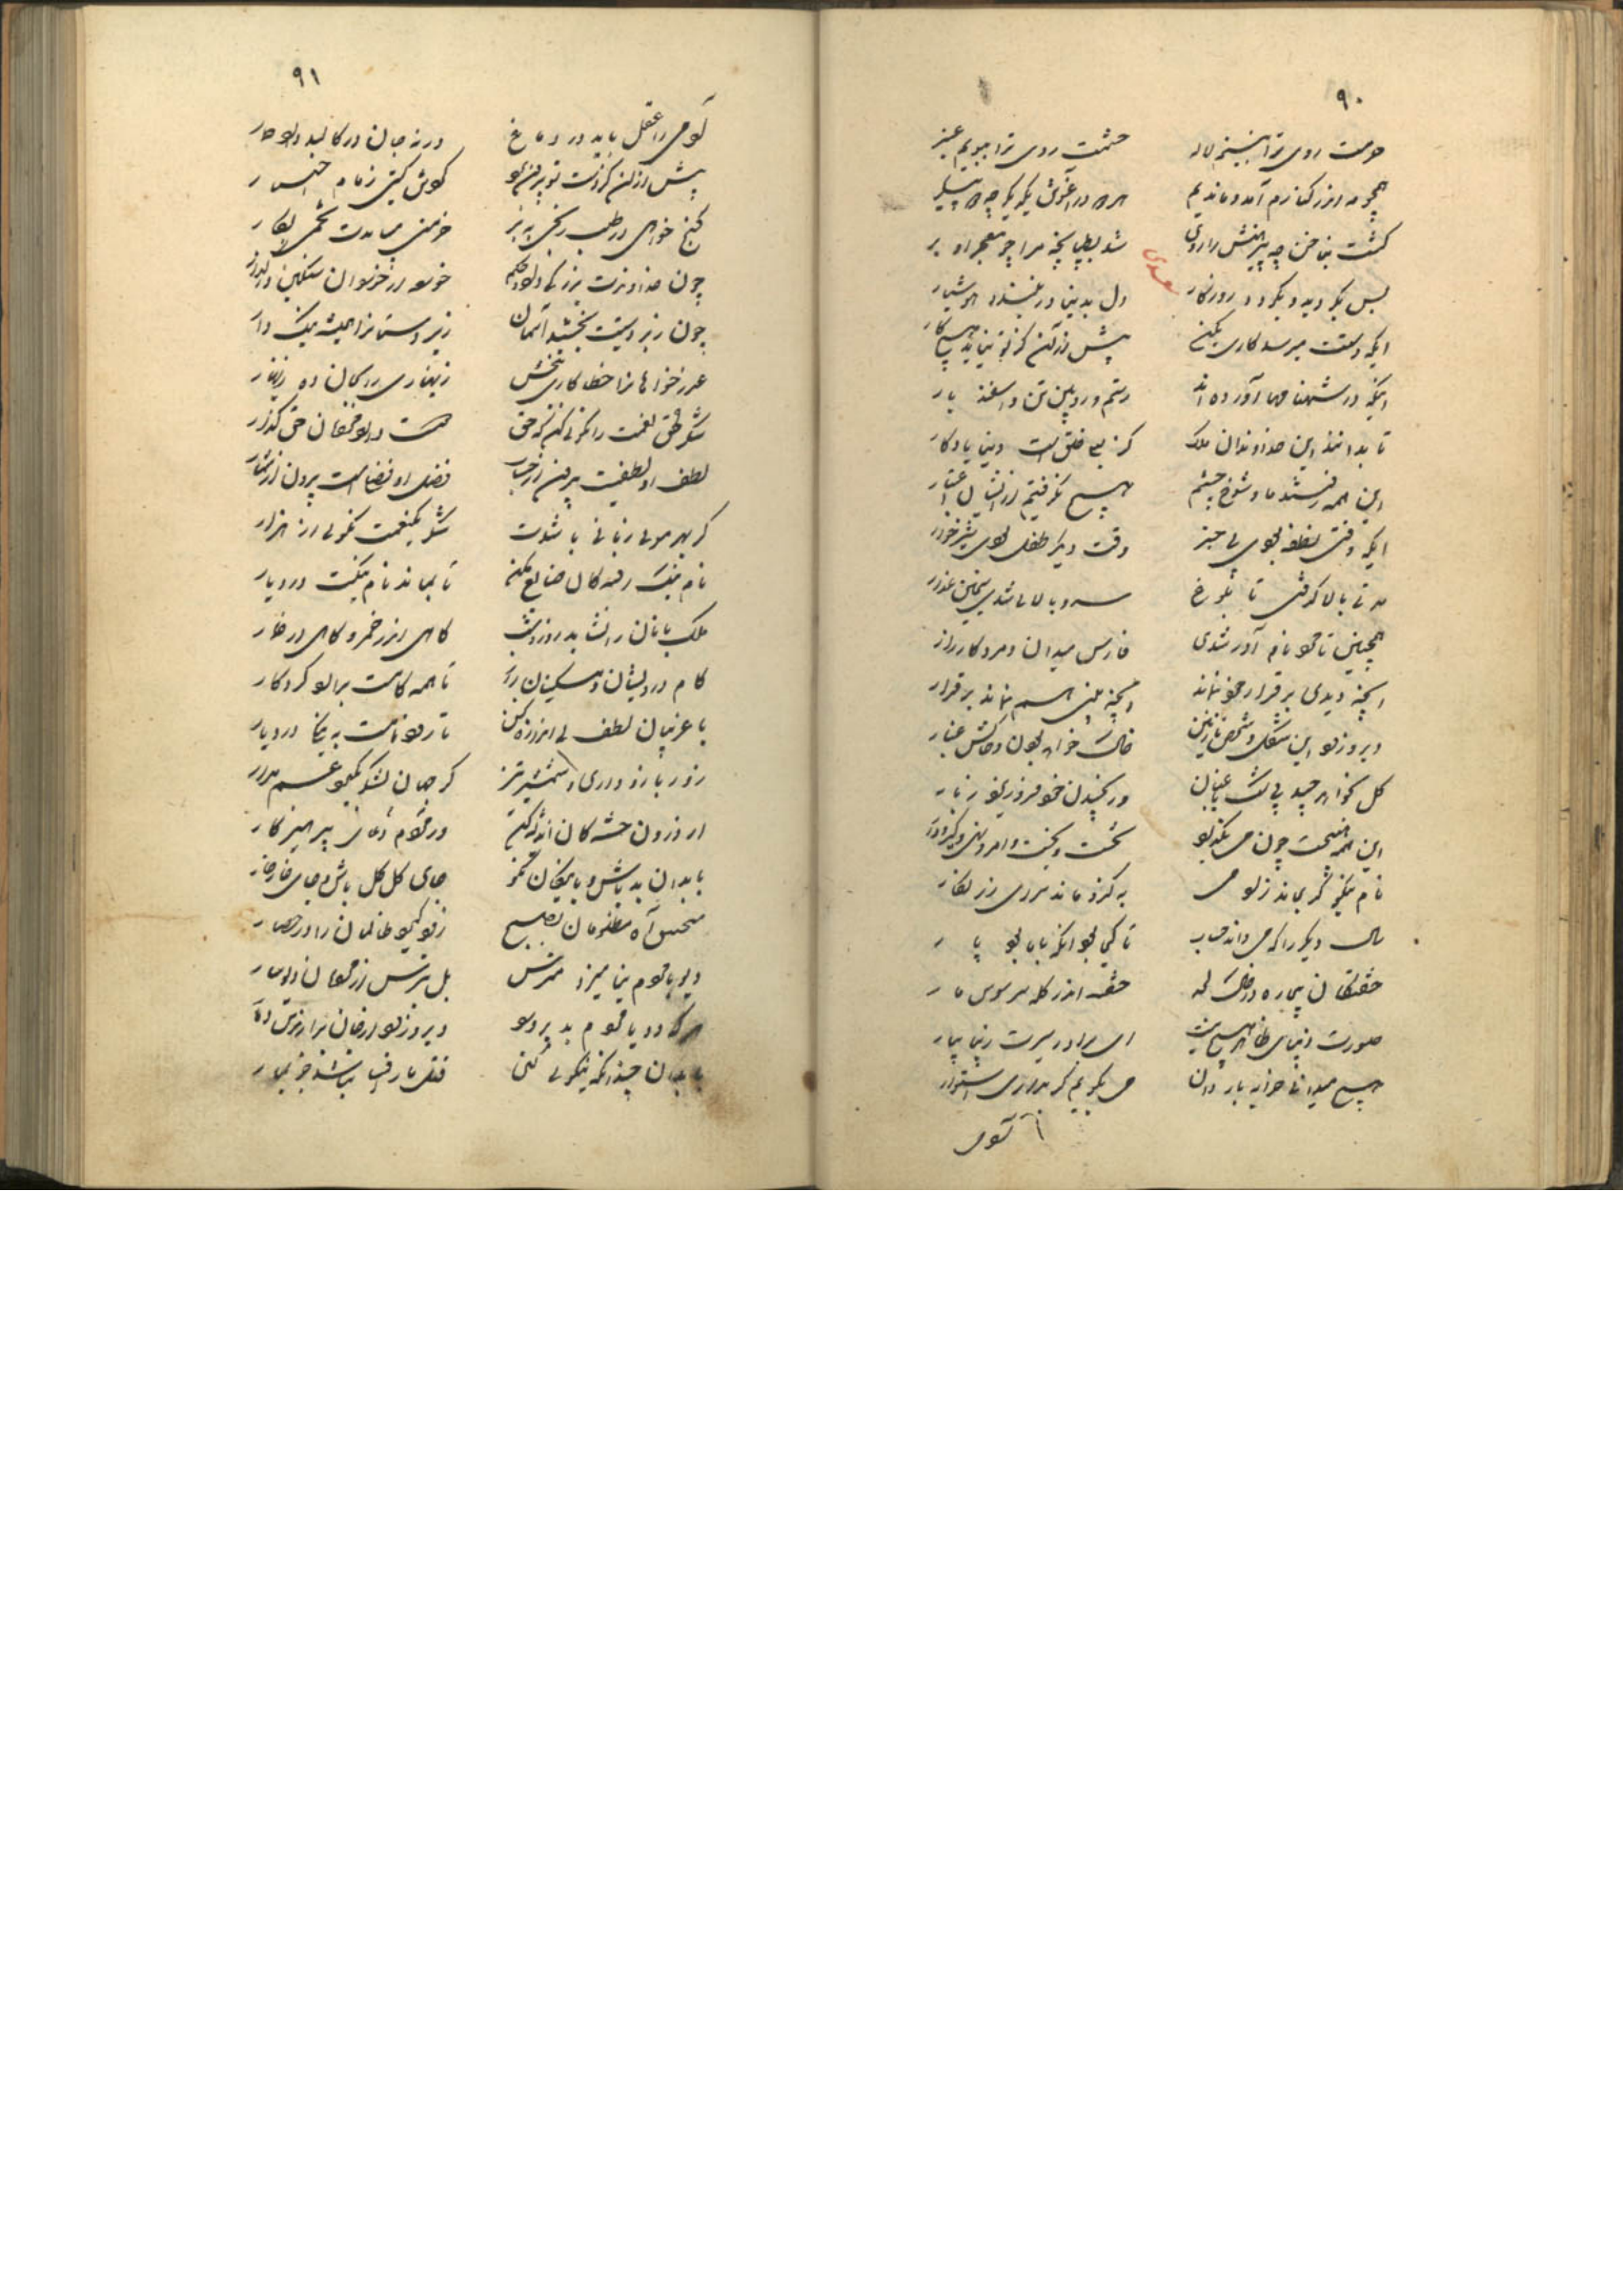 ۹۰
همچو مه اندر کنارم آمد و ماندیم
سعدی
بس بگردید و بگردد روزگار دل بدنیا در نبندد هوشیار
ایکه دستت میرسد کاری بکن پیش از آن کز تو نیاید هیچ کار
اینکه در شهنامها آورده اند رستم و رویین تن و اسفندیار
تا بدانند این خداوندان ملک کز بسی خلق است دنیا یادگار
این همه رفتند ما و شوخ چشم هیچ نگرفتیم از ایشان اعتبار
ایکه وقتی نطفه بودی بی خبر وقت دیگر طفل بودی شیرخوار
مدتی بالا گرفتی تا بلوغ سرو بالائی شدی سیمین عذار
همچنین تا مرد نام آور شدی فارس میدان و مرد کارزار
آنچه دیدی بر قرار خود نماند وآنچه بینی هم نماند بر قرار
دیر و زود این شکل و شخص نازنین خاک خواهد بودن و خاکش غبار
گل بخواهد چید بی شک باغبان ور نچیند خود فرو ریزد ز بار
این همه هیچست چون می بگذرد تخت و بخت و امر و نهی و گیر و دار
نام نیکو گر بماند ز آدمی به کزو ماند سرای زرنگار
سال دیگر را که می داند حساب تا کجا بود آنکه با ما بود پار
خفتگان بیچاره در خاک لحد خفته اندر کله سر سوسمار
صورت زیبای ظاهر هیچ نیست ای برادر سیرت زیبا بیار
هیچ میدانی خرد به یا روان من بگویم گر بداری استوار
آدمی
۹۱
آدمی را عقل باید در دماغ ورنه جان در کالبد دارد حمار
پیش از آن کز دست تو بیرون برد گردش گیتی زمام اختیار
گنج خواهی در طلب رنجی ببر خرمنی میبایدت تخمی بکار
چون خداوندت بزرگی داد و حکم خرده از خردان مسکین در گذار
چون زبردستیت بخشید آسمان زیردستانرا همیشه نیک دار
عذرخواهانرا خطا کاری ببخش زینهاری را بجان ده زینهار
شکر نعمت را نکوئی کن که حق دوست دارد بندگان حق گذار
لطف او لطفیست بیرون از حساب فضل او فضلیست بیرون از شمار
گر بهر موئی زبانی باشدت شکر یک نعمت نگوئی از هزار
نام نیک رفتگان ضایع مکن تا بماند نام نیکت در دیار
ملک بانان را نشاید روز و شب گاهی اندر خمر و گاهی در خمار
کام درویشان و مسکینان بده تا همه کامت برآرد کردگار
با غریبان لطف بی اندازه کن تا رود نامت به نیکی در دیار
زور بازو داری و شمشیر تیز گر جهان لشکر بگیرد غم مدار
از درون خستگان اندیشه کن وز دعای مردم پرهیزکار
با بدان بد باش و با نیکان نکو جای گل گل باش و جای خار خار
منجنیق آه مظلومان بصبح زود گیرد ظالمان را در حصار
دیو با مردم نیامیزد مترس بل بترس از مردمان دیوسار
هر که دد یا مردم بد پرورد دیر و زود از جان برآرندش دمار
با بدان چندانکه نیکوئی کنی قتل مار افسا نباشد جز بمار